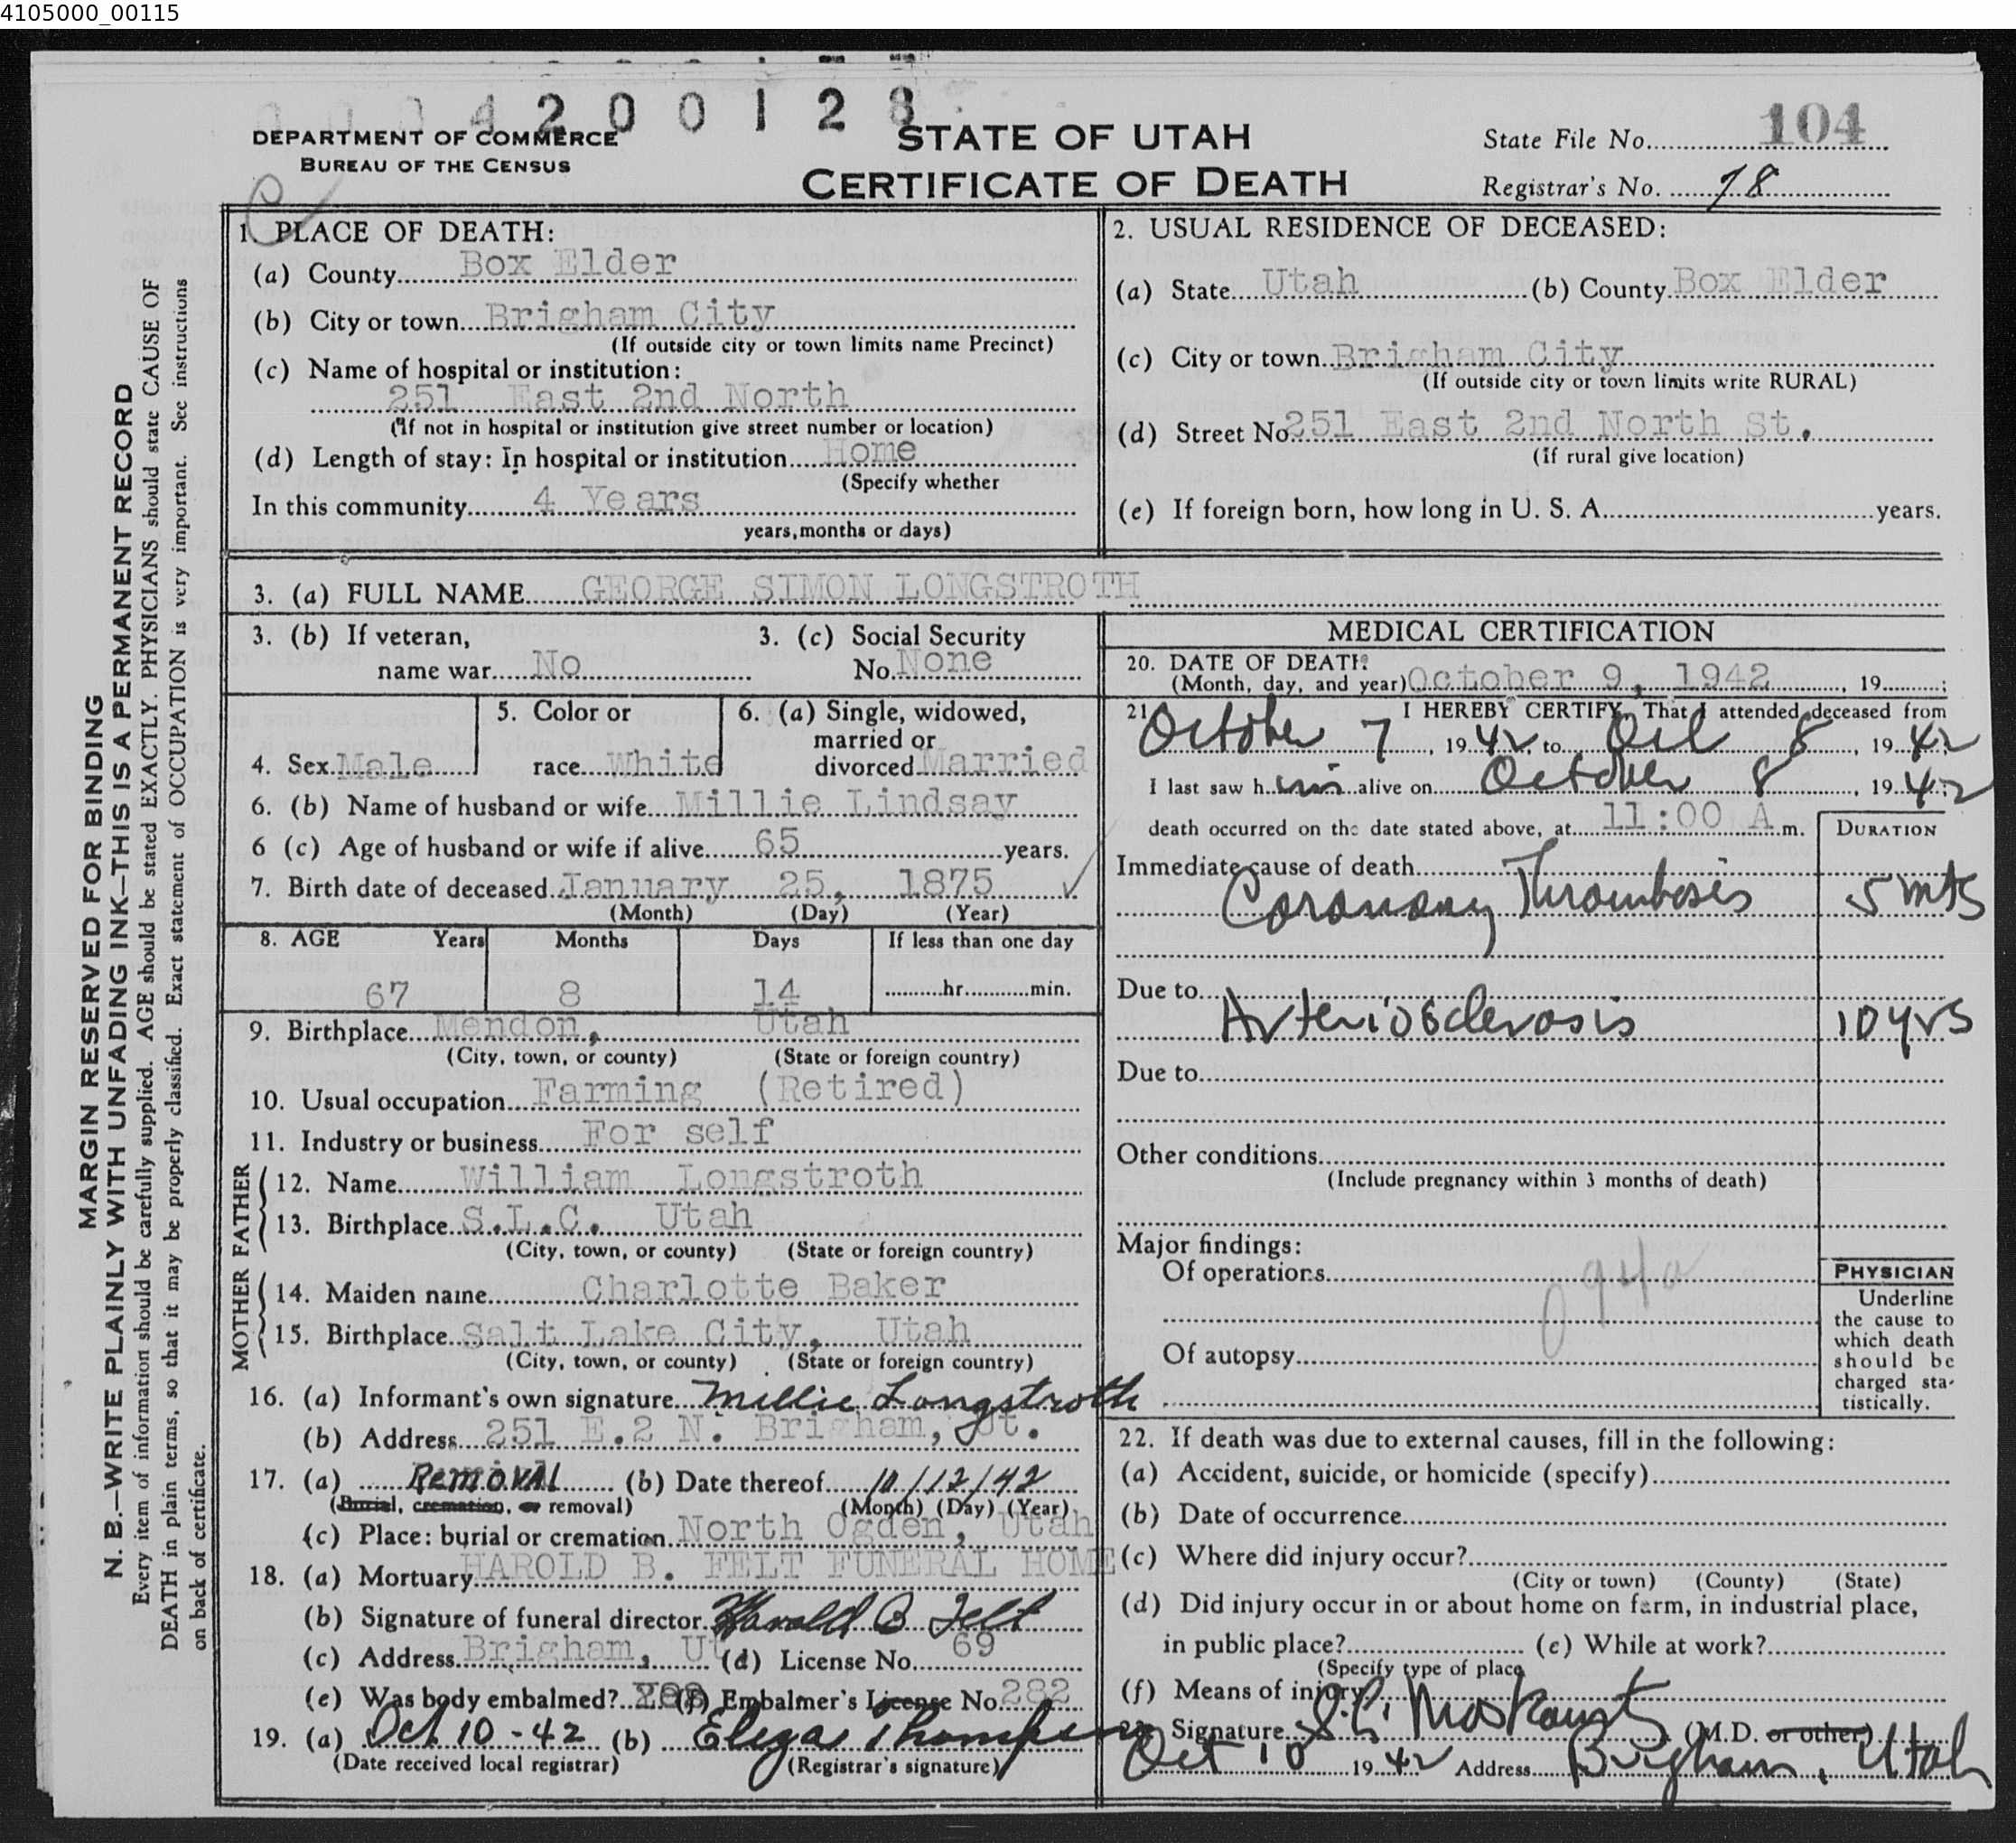 4105000_00115
0004200128
DEPARTMENT OF COMMERCE
BUREAU OF THE CENSUS
STATE OF UTAH
CERTIFICATE OF DEATH
State File No. 104
Registrar's No. 78
MARGIN RESERVED FOR BINDING
N. B.—WRITE PLAINLY WITH UNFADING INK—THIS IS A PERMANENT RECORD
Every item of information should be carefully supplied. AGE should be stated EXACTLY. PHYSICIANS should state CAUSE OF
DEATH in plain terms, so that it may be properly classified. Exact statement of OCCUPATION is very important. See instructions
on back of certificate.
1. PLACE OF DEATH:
(a) County Box Elder
(b) City or town Brigham City
(If outside city or town limits name Precinct)
(c) Name of hospital or institution:
251 East 2nd North
(If not in hospital or institution give street number or location)
(d) Length of stay: In hospital or institution Home
(Specify whether
In this community 4 Years
years, months or days)
2. USUAL RESIDENCE OF DECEASED:
(a) State Utah (b) County Box Elder
(c) City or town Brigham City
(If outside city or town limits write RURAL)
(d) Street No 251 East 2nd North St.
(If rural give location)
(e) If foreign born, how long in U. S. A. years.
3. (a) FULL NAME GEORGE SIMON LONGSTROTH
3. (b) If veteran, 3. (c) Social Security
name war No No. None
4. Sex Male
5. Color or
race White
6. (a) Single, widowed,
married or
divorced Married
6. (b) Name of husband or wife Millie Lindsay
6 (c) Age of husband or wife if alive 65 years.
7. Birth date of deceased January 25, 1875
(Month) (Day) (Year)
8. AGE Years Months Days If less than one day
67 8 14 hr. min.
9. Birthplace Mendon, Utah
(City, town, or county) (State or foreign country)
10. Usual occupation Farming (Retired)
11. Industry or business For self
FATHER
12. Name William Longstroth
13. Birthplace S.L.C. Utah
(City, town, or county) (State or foreign country)
MOTHER
14. Maiden name Charlotte Baker
15. Birthplace Salt Lake City, Utah
(City, town, or county) (State or foreign country)
16. (a) Informant's own signature Millie Longstroth
(b) Address 251 E. 2 N. Brigham, Ut.
17. (a) Removal (b) Date thereof 10/12/42
(Burial, cremation, or removal) (Month) (Day) (Year)
(c) Place: burial or cremation North Ogden, Utah
18. (a) Mortuary HAROLD B. FELT FUNERAL HOME
(b) Signature of funeral director Harold B Felt
(c) Address Brigham, Ut (d) License No. 69
(e) Was body embalmed? Yes (f) Embalmer's License No. 282
19. (a) Oct 10-42 (b) Eliza Thompson
(Date received local registrar) (Registrar's signature)
MEDICAL CERTIFICATION
20. DATE OF DEATH
(Month, day, and year) October 9, 1942, 19 ;
21. I HEREBY CERTIFY, That I attended deceased from
October 7, 1942, to Oct 8, 1942;
I last saw him alive on October 8, 1942;
death occurred on the date stated above, at 11:00 A.m.
DURATION
Immediate cause of death
Coronary Thrombosis 5 mts
Due to
Arteriosclerosis 10 yrs
Due to
Other conditions
(Include pregnancy within 3 months of death)
Major findings:
Of operations
094a
Of autopsy
PHYSICIAN
Underline
the cause to
which death
should be
charged sta-
tistically.
22. If death was due to external causes, fill in the following:
(a) Accident, suicide, or homicide (specify)
(b) Date of occurrence
(c) Where did injury occur?
(City or town) (County) (State)
(d) Did injury occur in or about home on farm, in industrial place,
in public place? (e) While at work?
(Specify type of place
(f) Means of injury
Signature (M.D. or other)
Oct 10 1942 Address Brigham, Utah